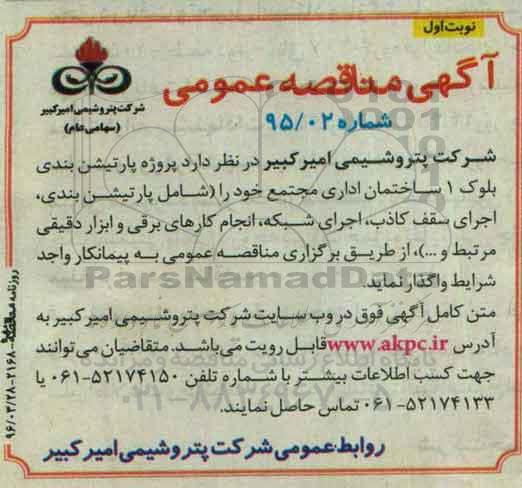 نوبت اول
آگهی مناقصه عمومی
شماره ۹۵/۰۲
شرکت پتروشیمی امیرکبیر
(سهامی عام)
شرکت پتروشیمی امیرکبیر در نظر دارد پروژه پارتیشن بندی
بلوک ۱ ساختمان اداری مجتمع خود را (شامل پارتیشن بندی،
اجرای سقف کاذب، اجرای شبکه، انجام کارهای برقی و ابزار دقیقی
مرتبط و ...)، از طریق برگزاری مناقصه عمومی به پیمانکار واجد
شرایط واگذار نماید.
ParsNamadData
متن کامل آگهی فوق در وب سایت شرکت پتروشیمی امیرکبیر به
آدرس www.akpc.ir قابل رویت می‌باشد. متقاضیان می‌توانند
جهت کسب اطلاعات بیشتر با شماره تلفن ۵۲۱۷۴۱۵۰-۰۶۱ یا
۵۲۱۷۴۱۳۳-۰۶۱ تماس حاصل نمایند.
روابط عمومی شرکت پتروشیمی امیرکبیر
روزنامه مناقصه ۲۱۶۸-۹۶/۰۳/۲۸